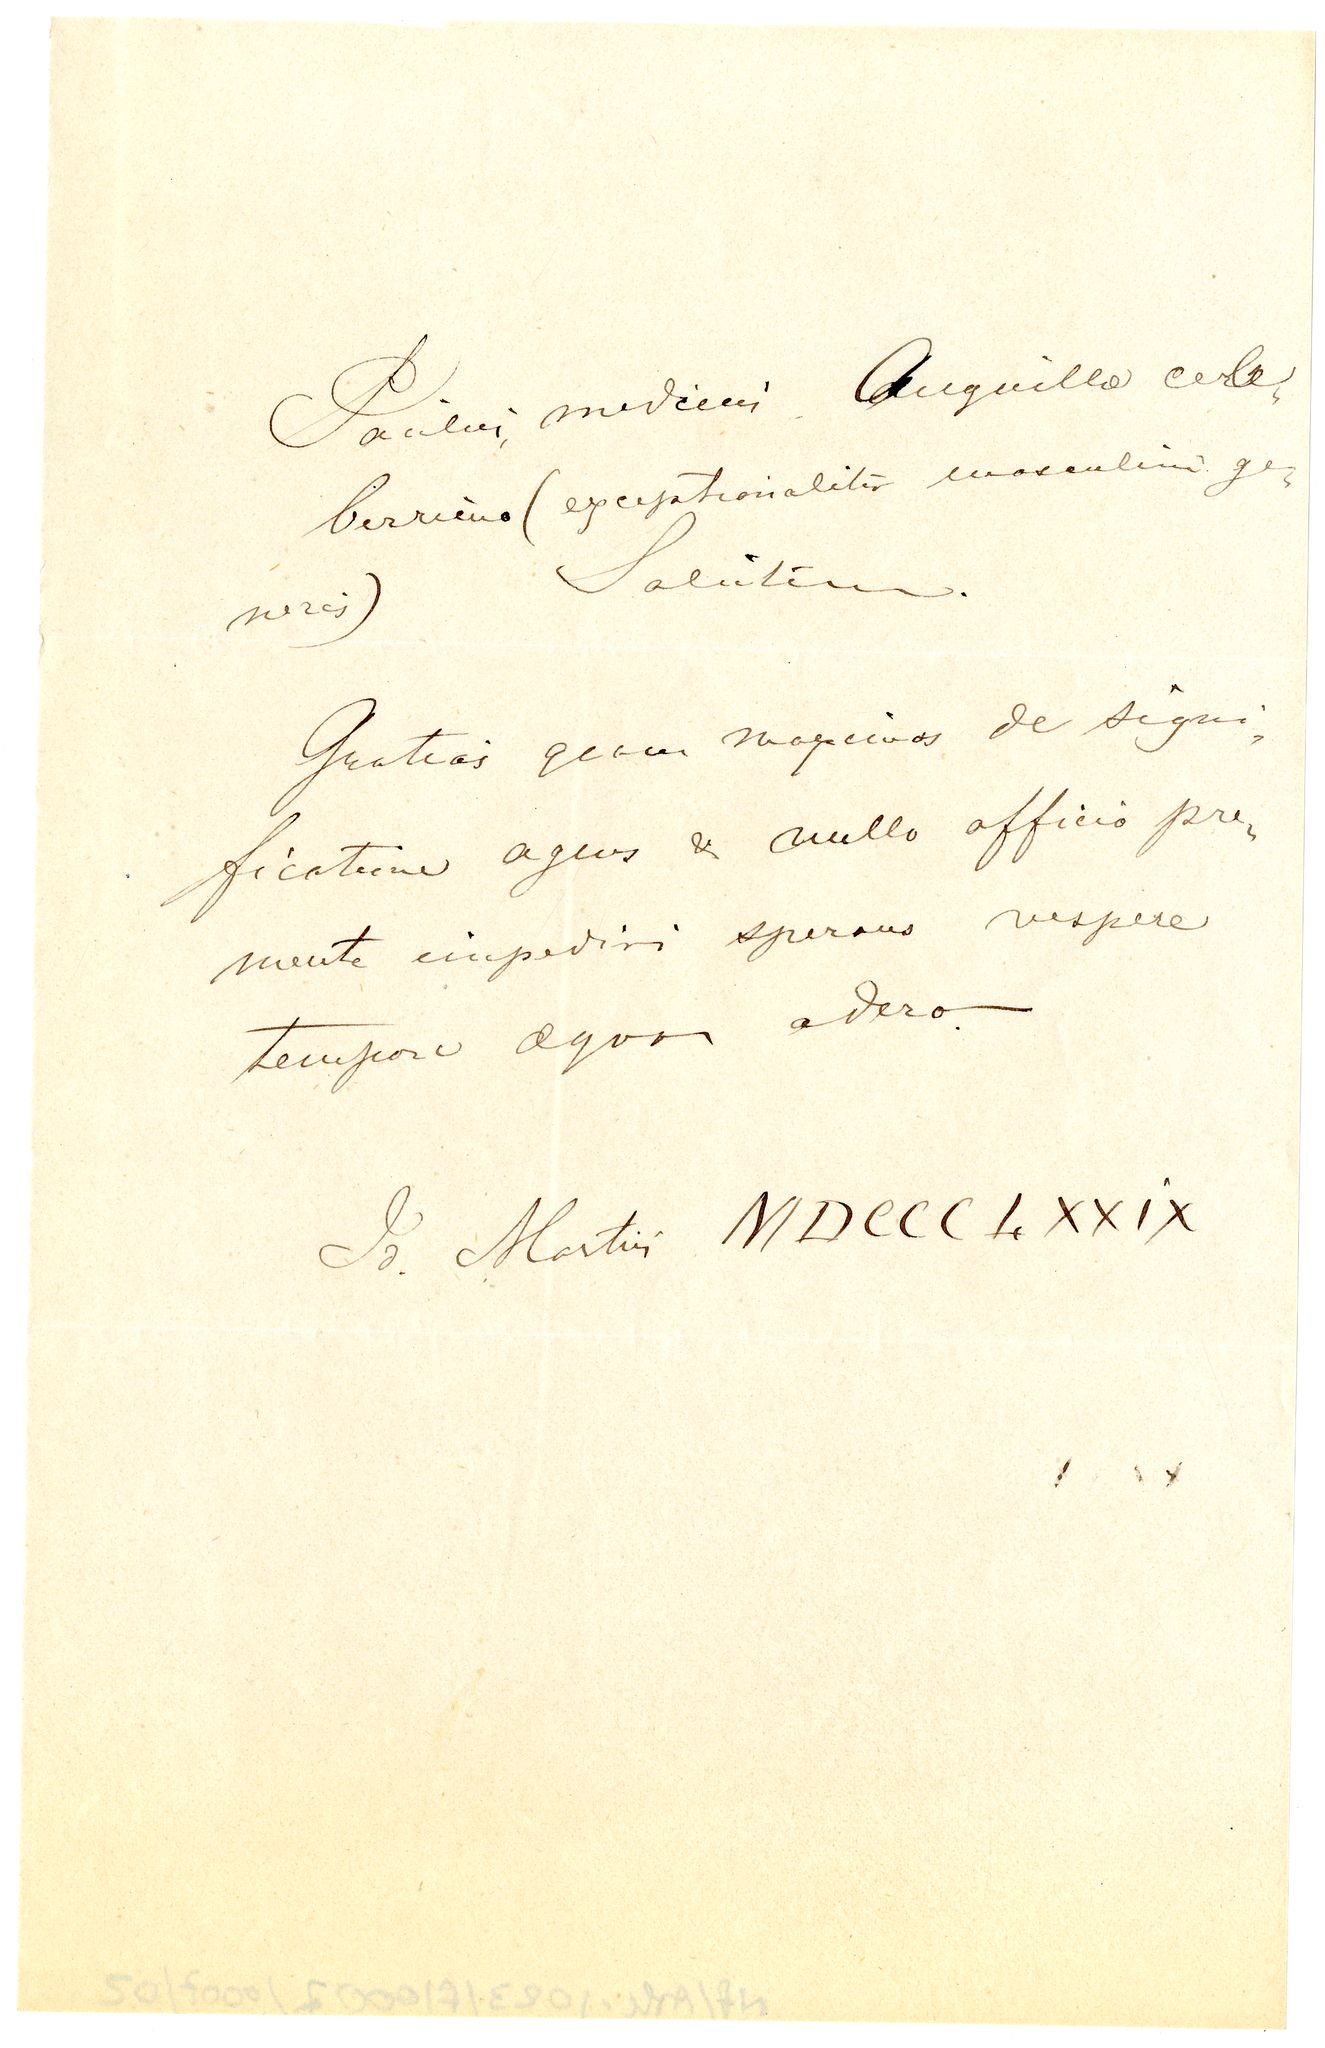 Paulus, medicus Anguilla cele-
berrima (exceptionaliter masculini ge-
neris) Salutem.
Gratias quam maximas de signi-
ficatione agens & nullo officio pre-
mente impediri sperans vespere
tempore aequo adero.
Is. Martii MDCCCLXXIX